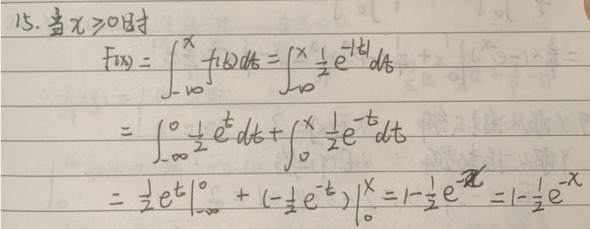 15. 当x≥0时
F(x) = ∫_{-∞}^{x} f(t)dt = ∫_{-∞}^{x} ½ e^{-|t|} dt
= ∫_{-∞}^{0} ½ e^{t} dt + ∫_{0}^{x} ½ e^{-t} dt
= ½ e^{t} |_{-∞}^{0} + (-½ e^{-t}) |_{0}^{x} = 1-½ e^{-x} = 1-½ e^{-x}